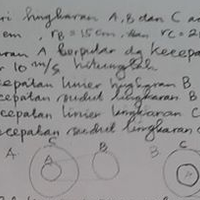 ri lingkaran A, B dan C a
cm, rB = 15 cm, dan rC = 2
ran A berputar dg kecepa
r 10 m/s hitunglah
cepatan linier lingkaran B
ecepatan sudut lingkaran B
cepatan linier lingkaran C
ecepatan sudut lingkaran
A C B B C
A A